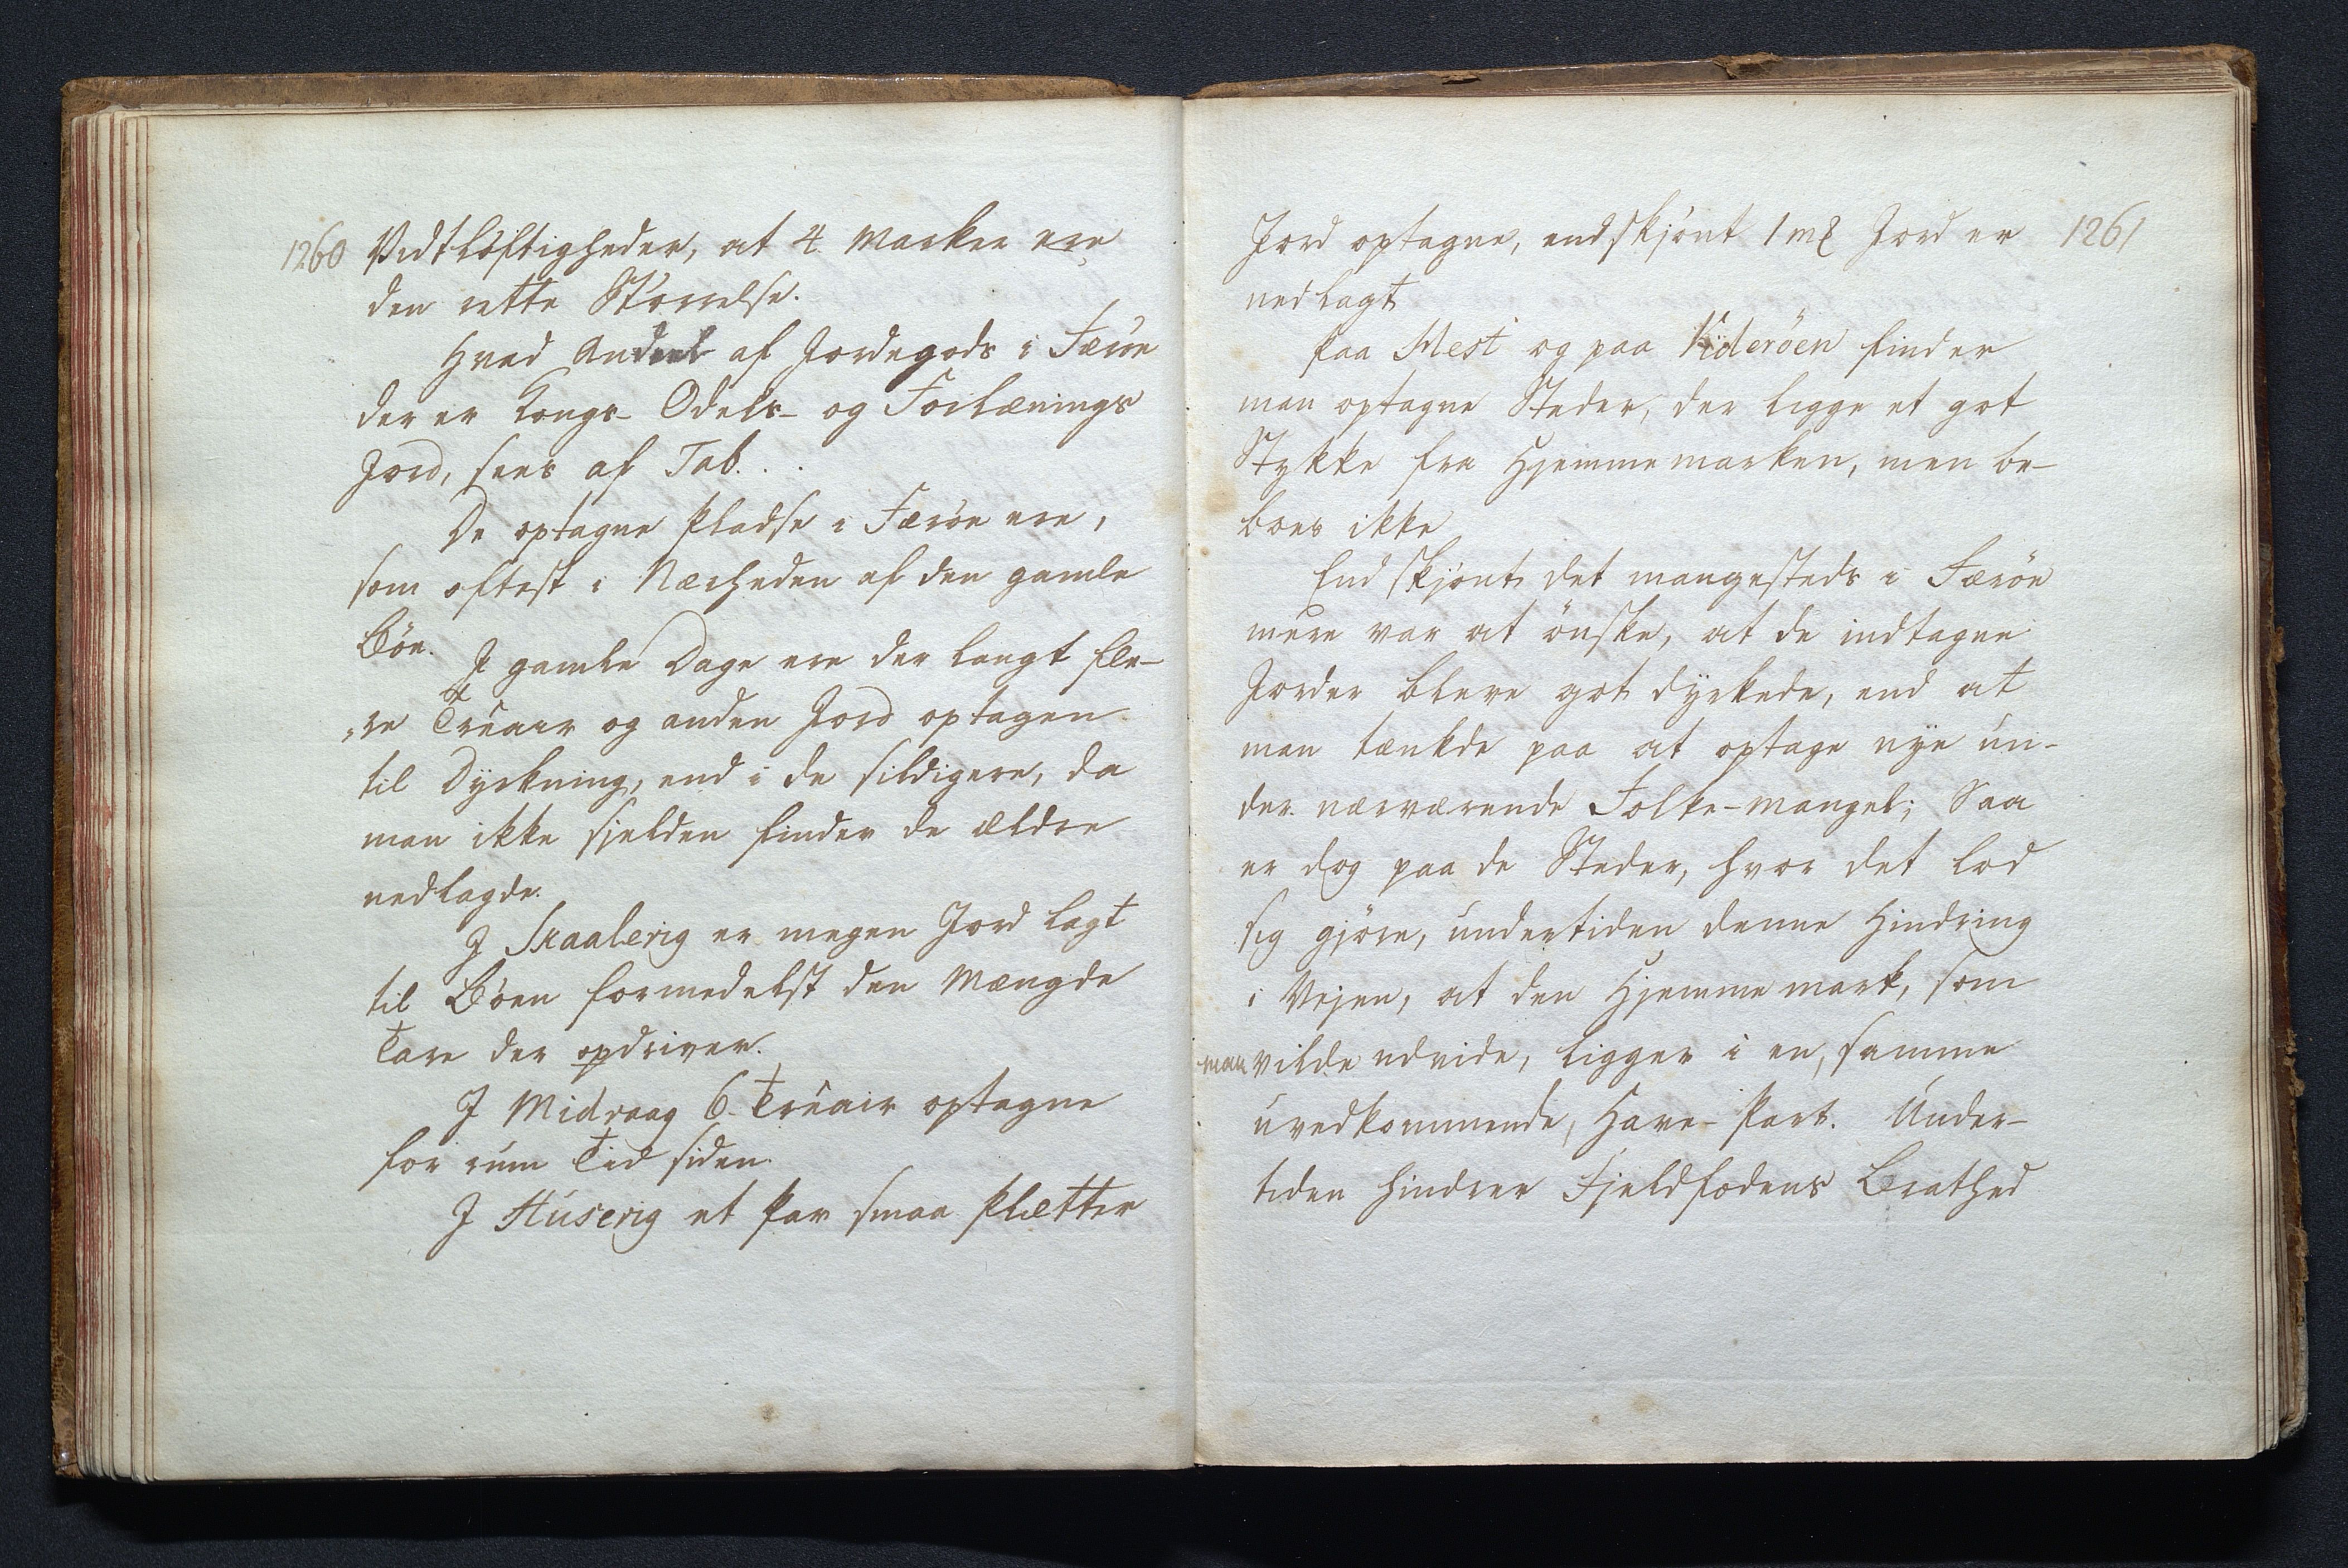 1260 Vidtløftigheder, at 4 Marker ere
den rette Størrelse.
Hvad Andeel af Jordegods i Færöe
der er Kongs- Odels- og Forlænings
Jord, sees af Tab. . .
De optagne Pladse i Færöe ere,
som oftest i Nærheden af den gamle
Böe.
I gamle Dage ere der langt fle-
re Tröair og anden Jord optagen
til Dyrkning, end i de sildigere, da
man ikke sjelden finder de ældre
nedlagde.
I Skaalevig er megen Jord lagt
til Böen formedelst den Mængde
Tare der opdriver.
I Midvaag 6 Tröair optagne
for rum Tid siden.
I Húsevig et Par smaa Pletter
Jord optagne, endskjönt 1 mk Jord er 1261
nedlagt
Paa Hest og paa Videröen finder
man optagne Steder, der ligge et got
Stykke fra Hjemmemarken, men be-
boes ikke
Endskjönt det mangesteds i Færöe
mere var at önske, at de indtagne
Jorder bleve got dyrkede, end at
man tænkde paa at optage nye ún-
der nærværende Folke-mangel; Saa
er dog paa de Steder, hvor det lod
sig gjöre, undertiden denne Hindring
i Vejen, at den Hjemmemark, som
man vilde udvide, ligger i en, samme
uvedkommende, Have-Part. Under-
tiden hindrer Fjeldfodens Brathed